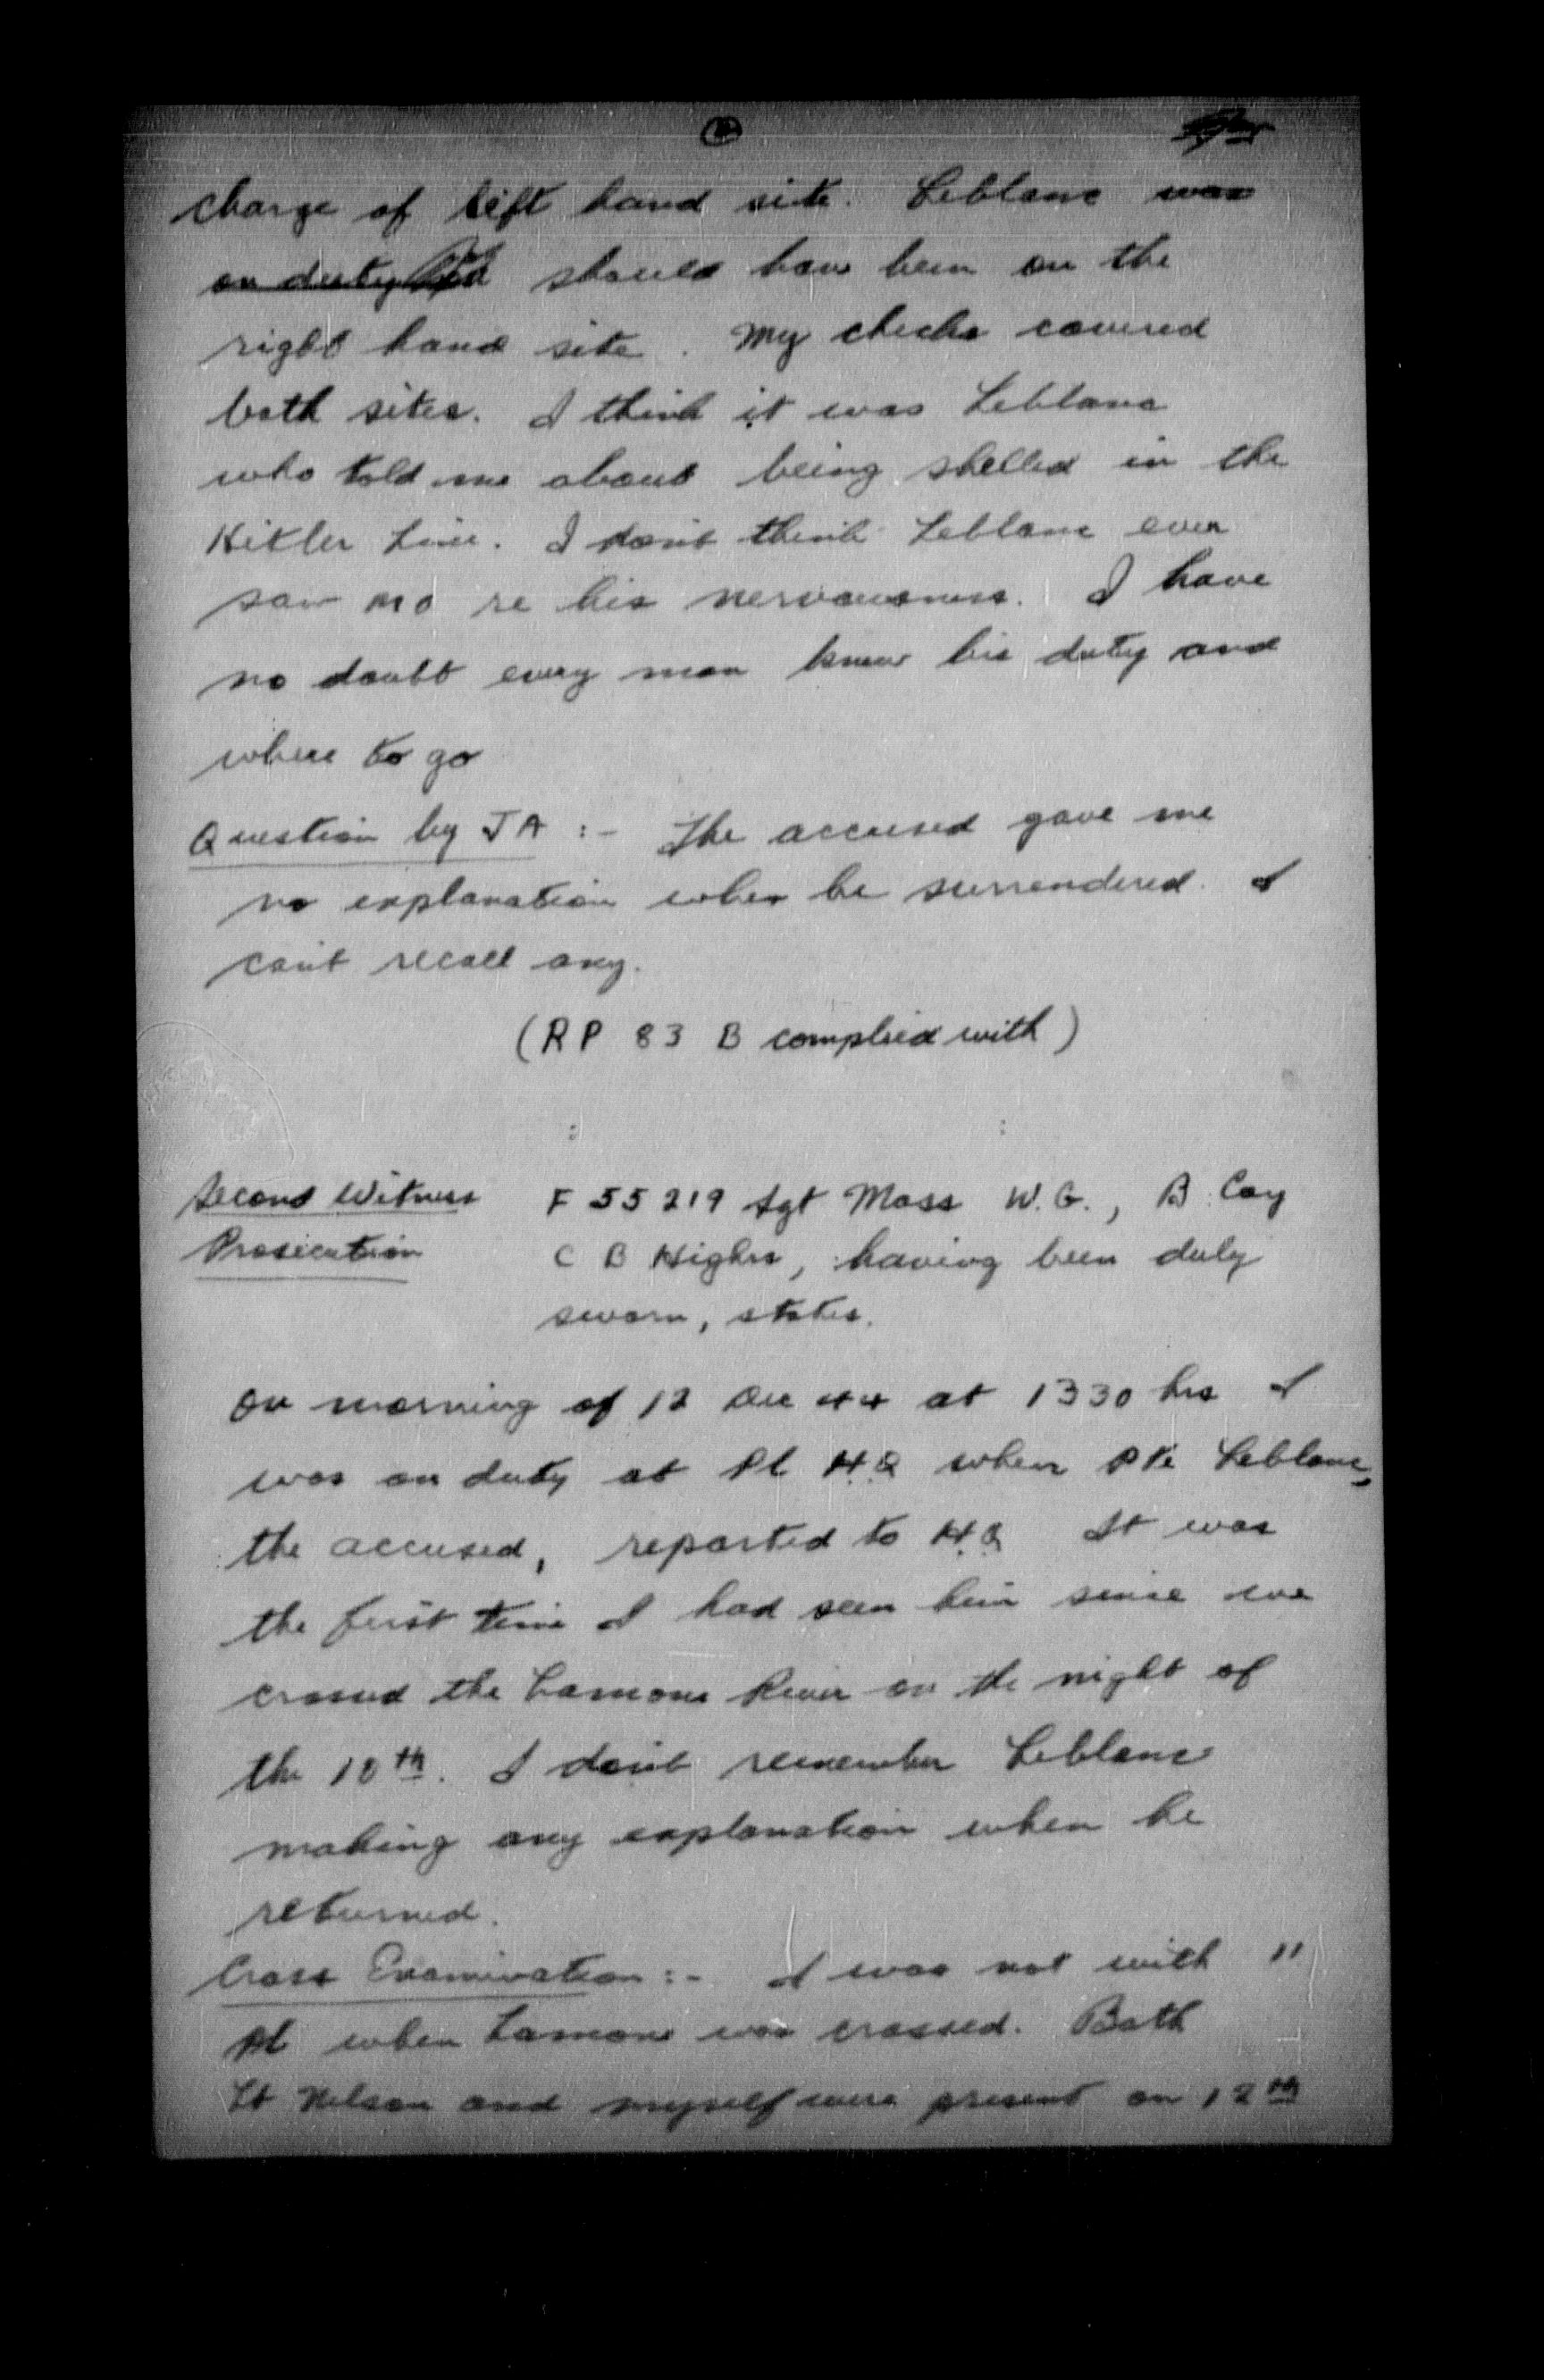 charge of left hand site. Leblanc was
on duty should have been on the
right hand site. My checks covered
both sites. I think it was Leblanc
who told me about being shelled in the
Hitler Line. I don't think Leblanc ever
saw MO re his nervousness. I have
no doubt every man knew his duty and
where to go
Question by JA :- The accused gave me
no explanation when he surrendered. I
can't recall any.
(RP 83 B complied with)
Second Witness F 55219 Sgt Moss W.G., B Coy
Prosecution C B Highrs, having been duly
sworn, states.
On morning of 12 Dec 44 at 1330 hrs I
was on duty at Pl H.Q when Pte Leblanc,
the accused, reported to H.Q It was
the first time I had seen him since we
crossed the Lamone River on the night of
the 10th. I don't remember Leblanc
making any explanation when he
returned.
Cross Examination :- I was not with 11
Pl when Lamone was crossed. Both
Lt Nelson and myself were present on 12th